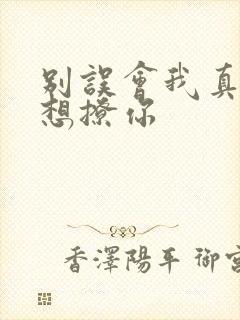 別誤會我真
想撩你
香澤陽平 御宮